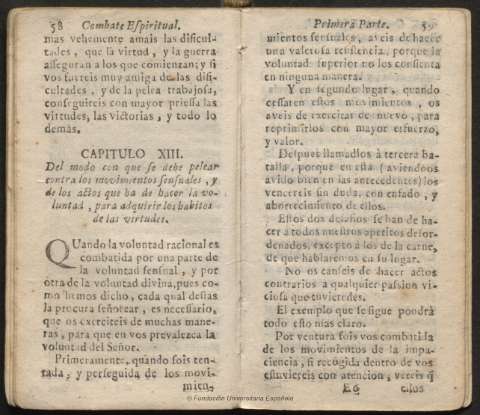 58 Combate Espiritual.
mas vehemente amais las dificul-
tades, que la virtud, y la guerra
asseguran a los que comienzan; y si
vos fuereis muy amiga de las difi-
cultades, y de la pelea trabajosa,
conseguireis con mayor priessa las
virtudes, las victorias, y todo lo
demás.
CAPITULO XIII.
Del modo con que se debe pelear
contra los movimientos sensuales, y
de los actos que ha de hacer la vo-
luntad, para adquirir los habitos
de las virtudes.
QUando la voluntad racional es
combatida por una parte de
la voluntad sensual, y por
otra de la voluntad divina, pues co-
mo hemos dicho, cada qual destas
la procura señorear, es necesario,
que os exerciteis de muchas mane-
ras, para que en vos prevalezca la
voluntad del Señor.
Primeramente, quando sois ten-
tada, y perseguida de los movi-
mien-
Primera Parte.
mientos sensuales, aveis de hacer
una valerosa resistencia, porque la
voluntad superior no los consienta
en ninguna manera.
Y en segundo lugar, quando
cessaren estos movimientos, os
aveis de exercitar de nuevo, para
reprimirlos con mayor esfuerzo,
y valor.
Despues llamadlos à tercera ba-
talla, porque en esta (aviendoos
avido bien en las antecedentes) los
vencereis sin duda, con enfado, y
aborrecimiento de ellos.
Estos dos desafios se han de ha-
cer à todos nuestros apetitos desor-
denados, excepto à los de la carne,
de que hablarémos en su lugar.
No os canseis de hacer actos
contrarios a qualquier passion vi-
ciosa que tuvieredes.
El exemplo que se sigue pondrà
todo esto mas claro.
Por ventura sois vos combatida
de los movimientos de la impa-
ciencia, si recogida dentro de vos
estuviereis con atencion, vereis q̃
ellos
© Fundación Universitaria Española